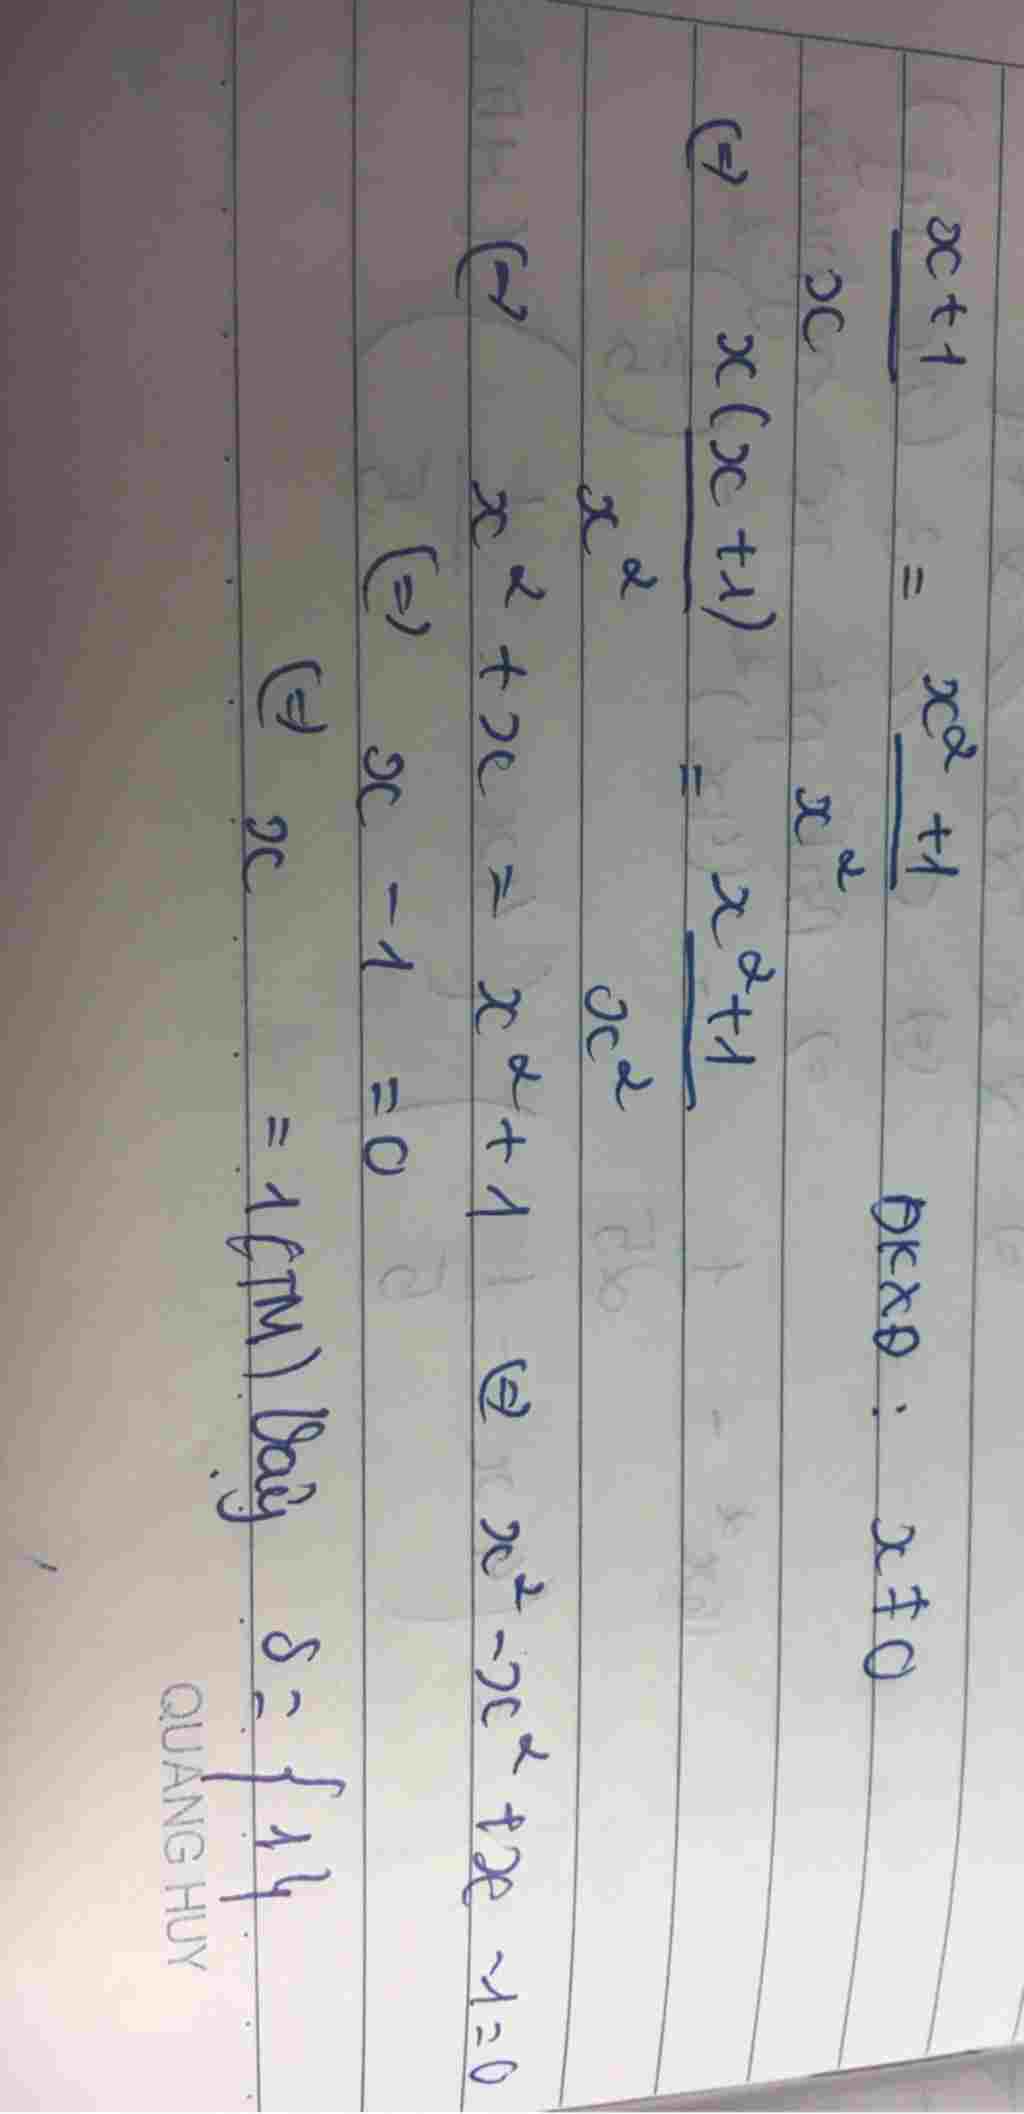 x+1 = x² +1 ĐKXĐ : x ≠ 0
x x²
(=) x(x+1) = x²+1
x² x²
(=) x² + x = x² + 1 (=) x² - x² + x - 1 = 0
(=) x - 1 = 0
(=) x = 1 (TM) Vậy S = {1}
QUANG HUY